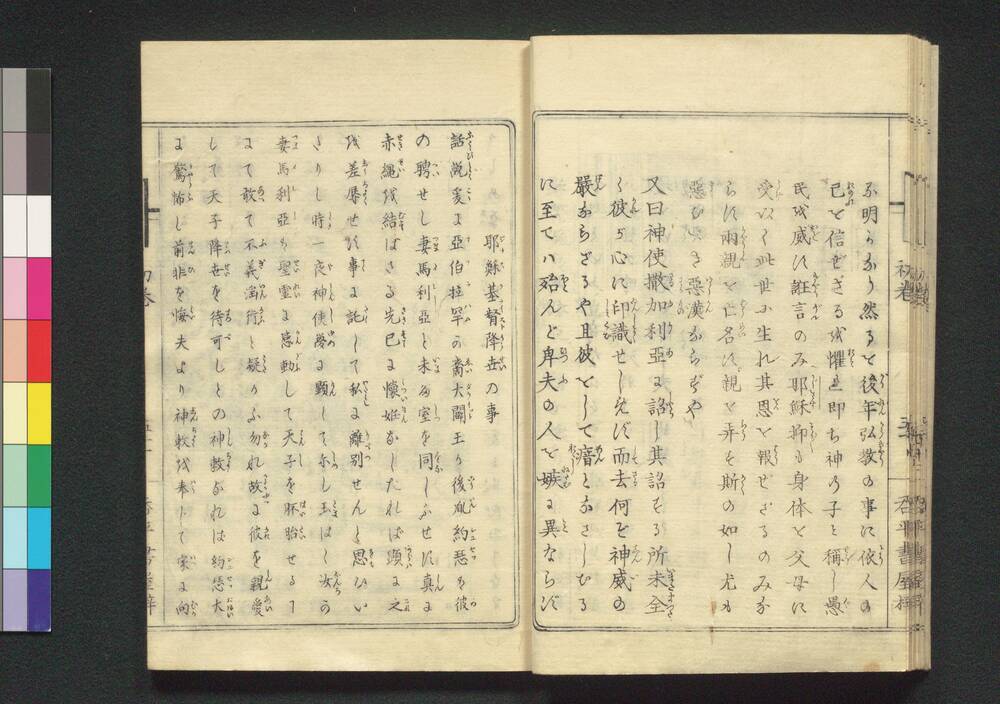 明らかなり然ると後年弘教の事に依人の
己を信ぜざるを懼れ即ち神の子と稱し愚
民を威に誑言のみ耶穌抑も身体を父母に
受以て此世に生れ其恩を報せざるのみな
らず兩親を亡名に親を弄を斯の如し尤も
惡むべき惡漢ならずや
又曰神使撒加利亞に諮し其諮する所未全
く彼が心に印識せしめず而去何を神威の
嚴ならざるや且彼をして瘖となさしむる
に至ては殆んど卑夫の人を嫉に異ならず
耶穌基督降世の事
話説爰に亞伯拉罕の裔大闢王の後胤約瑟も彼
の聘せし妻馬利亞と未な室を同しふせず真に
赤縄を結ばさる先已に懷妊なしたれば頭に之
を羞辱せず事に託して私に離別せんと思ひい
たりし時一夜神使夢に顕して示し玉はく汝の
妻馬利亞も聖霊に感動して天子を胚胎せる
にて敢て不義滛行と疑かふ勿れ故に彼を親愛
して天子降世を待可しとの神敕なれは約瑟大
に驚怖し前非を悔夫より神敕を奉して家に向
初巻